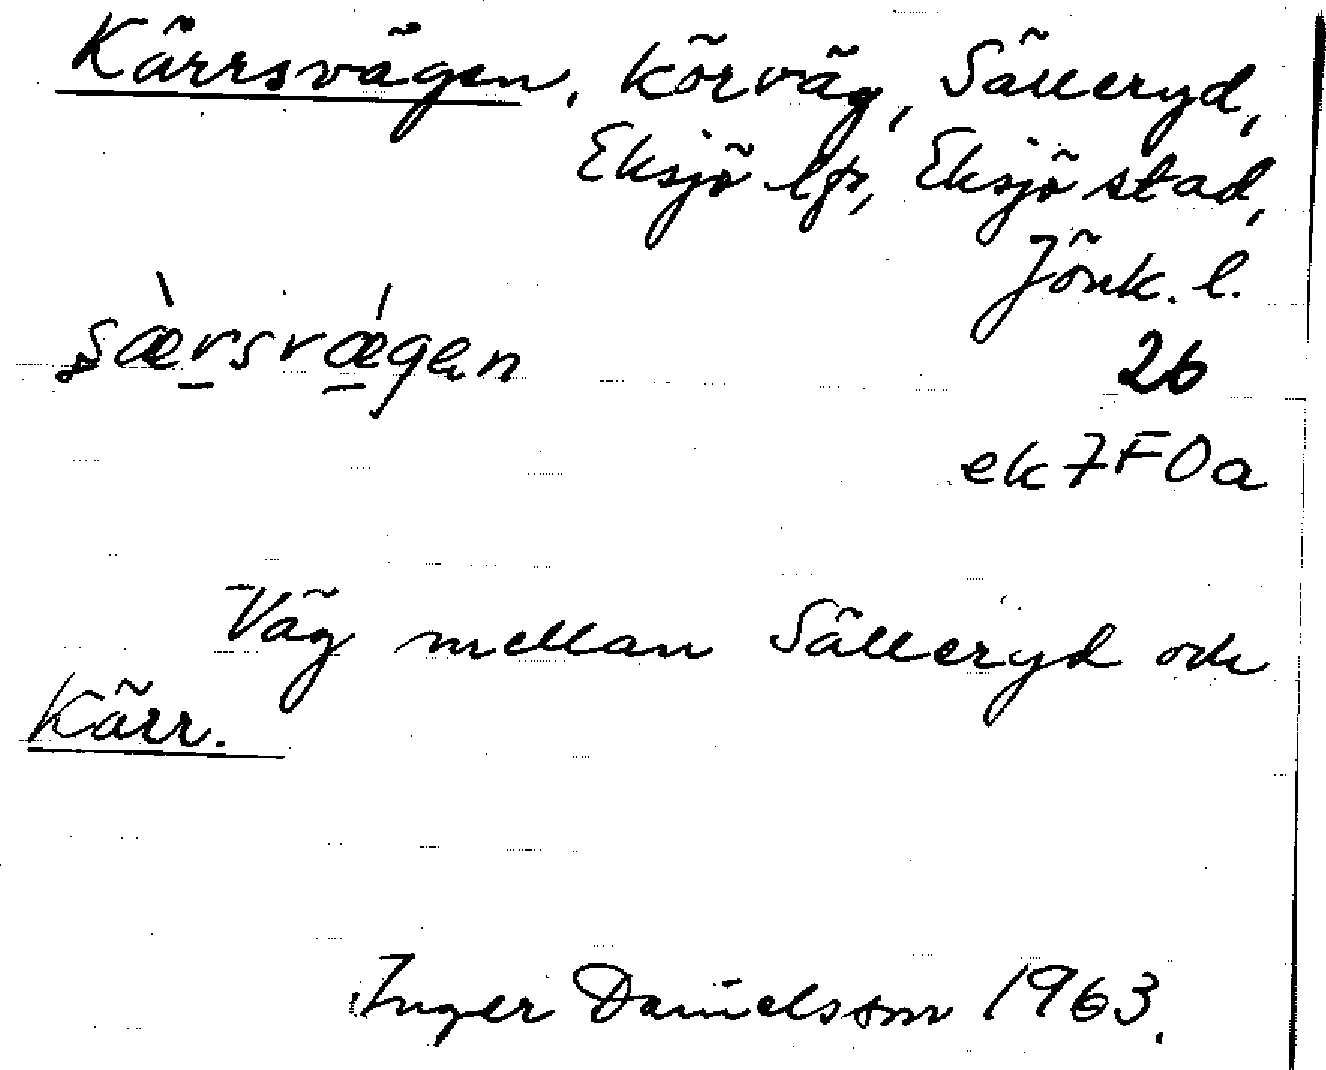 Kärrsvägen, körväg, Sälleryd,
Eksjö lfs, Eksjö stad,
Jönk. l.
26
ek 7F0a
Väg mellan Sälleryd och
Kärr.
Inger Danielsson 1963.